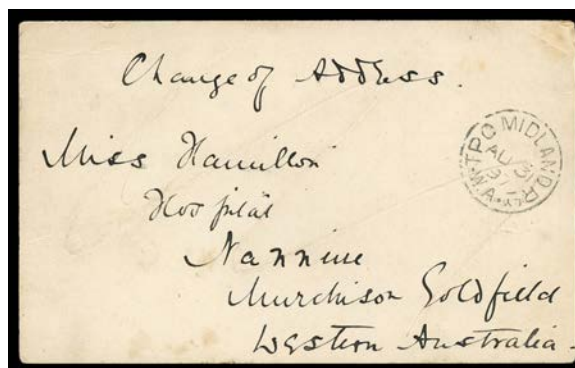 Change of Address.
Miss Hamilton
Hospital
Nannine
Murchison Goldfield
Western Australia
TPO MIDLAND R
AU 31
97
W.A